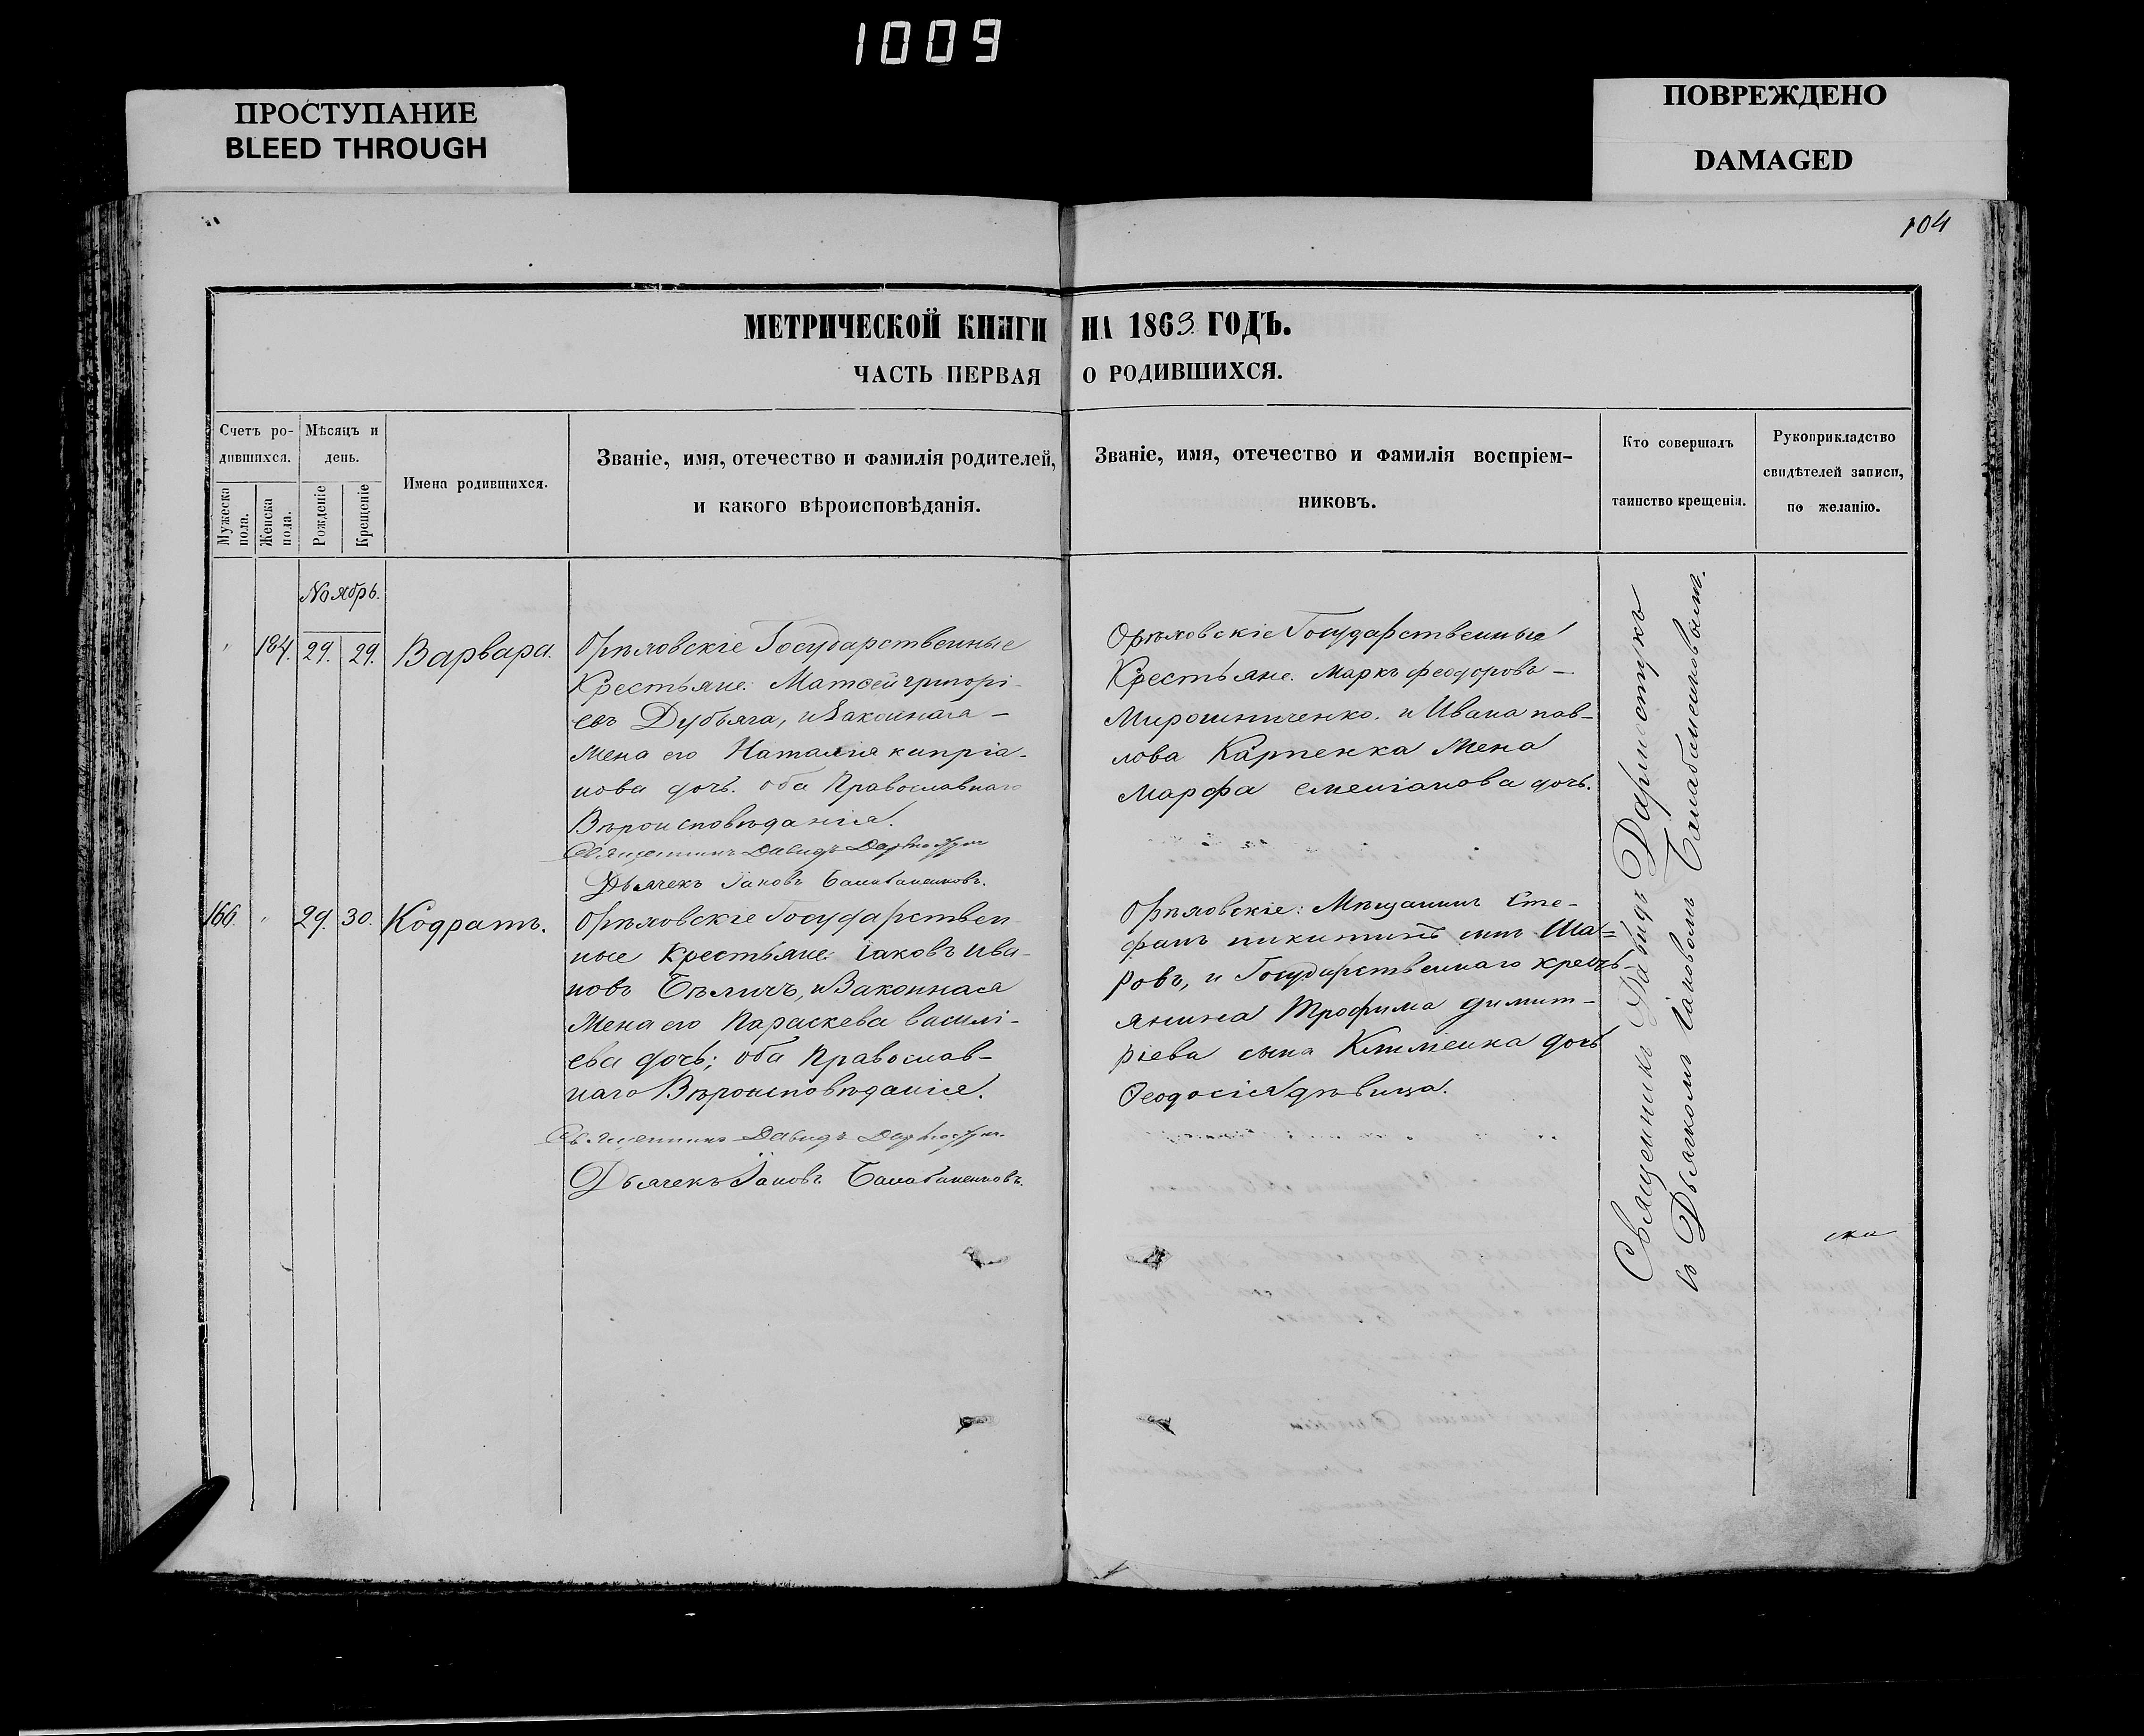 1009
ПРОСТУПАНИЕ
BLEED THROUGH
ПОВРЕЖДЕНО
DAMAGED
104
МЕТРИЧЕСКОЙ КНИГИ НА 1863 ГОДЪ.
ЧАСТЬ ПЕРВАЯ О РОДИВШИХСЯ.
Счетъ ро-
дившихся.
Мужеска пола.
Женска пола.
Мѣсяцъ и
день.
Рожденіе
Крещеніе
Имена родившихся.
Званіе, имя, отечество и фамилія родителей,
и какого вѣроисповѣданія.
Званіе, имя, отечество и фамилія воспріем-
никовъ.
Кто совершалъ
таинство крещенія.
Рукоприкладство
свидѣтелей записи,
по желанію.
Ноябрь.
184. 29. 29. Варвара.
Орѣховскіе Государственные
Крестьяне: Матѳей григорі-
евъ Дубяга, и Законная
Жена его Наталія кипріа-
нова дочь. оба Православнаго
Вѣроисповѣданія.
Священникъ Давидъ
Дьячекъ Іаковъ Балабаненковъ.
Орѣховскіе Государственные
Крестьяне. Маркъ феодоровъ
Мирошниченко. и Ивана пав-
лова Карпенка Жена
Марфа дочь.
166. 29. 30. Кодратъ.
Орѣховскіе Государствен
ные Крестьяне: Іаковъ Ива-
новъ Бѣличъ, и Законная
Жена его Параскева василі-
ева дочь; оба Православ-
наго Вѣроисповѣданія.
Священникъ Давидъ
Дьячекъ Іаковъ Балабаненковъ.
Орѣховскіе: Мѣщанинъ Сте-
фанъ никитинъ сынъ Ша=
ровъ, и Государственнаго кресть-
янина Трофима димит-
ріева сына Клименка дочь
Ѳеодосія дѣвица.
Священникъ Давидъ
съ Дьячкомъ Іаковомъ Балабаненковымъ.
ска